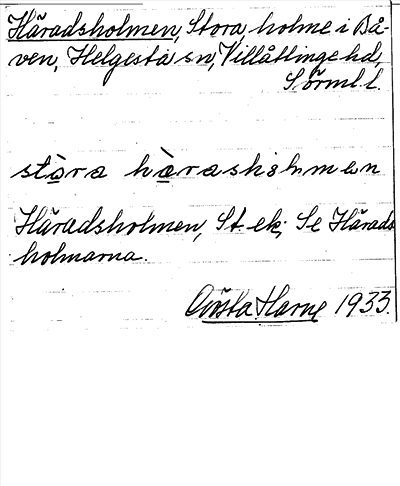 Häradsholmen, Stora, holme i Bå-
ven, Helgesta sn, Villåttinge hd,
Sörml. l.
stòra hàrashólmen
Häradsholmen, St. ek; Se Härads
holmarna.
Gösta Harne 1933.